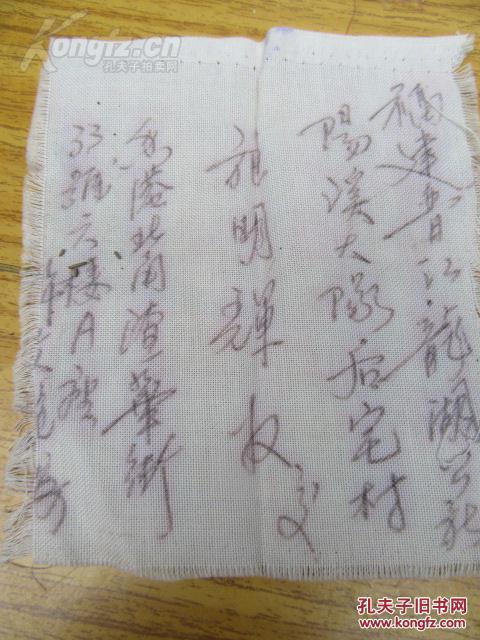 Kongfz.cn
孔夫子拍卖网
福建晋江龍湖公社
陽溪大隊后宅村
施明輝 收
香港北角渣華街
號六樓A座
孔夫子旧书网